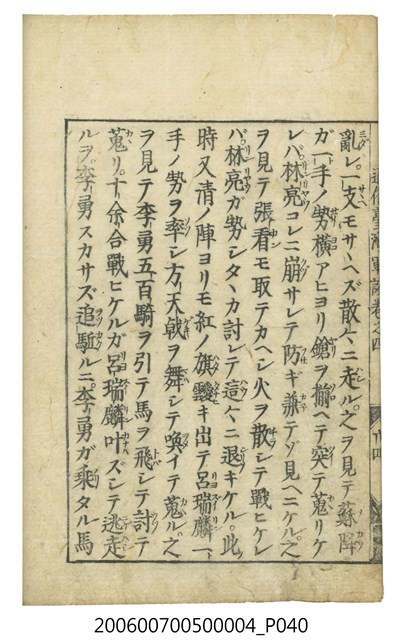 亂レ一支モサヽヘズ散々ニ走ル之ヲ見テ蘇降
ガ一手ノ勢横アヒヨリ鎗ヲ揃ヘテ突テ蒐リケ
レバ林亮コレニ崩サレテ防ギ兼テゾ見ヘニケル之
ヲ見テ張看モ取テカヘシ火ヲ散シテ戰ヒケレ
バ林亮ガ勢シタヽカ討レテ這々ニ退キケル此
時又清ノ陣ヨリモ紅ノ旗靉キ出テ呂瑞麟一
手ノ勢ヲ率シ方天戟ヲ舞シテ喚イテ蒐ル之
ヲ見テ李勇五百騎ヲ引テ馬ヲ飛シテ討テ
蒐リ十余合戰ヒケルガ呂瑞麟叶ズシテ逃走
ルヲ李勇スカサズ追駈ルニ李勇ガ乘タル馬
200600700500004_P040